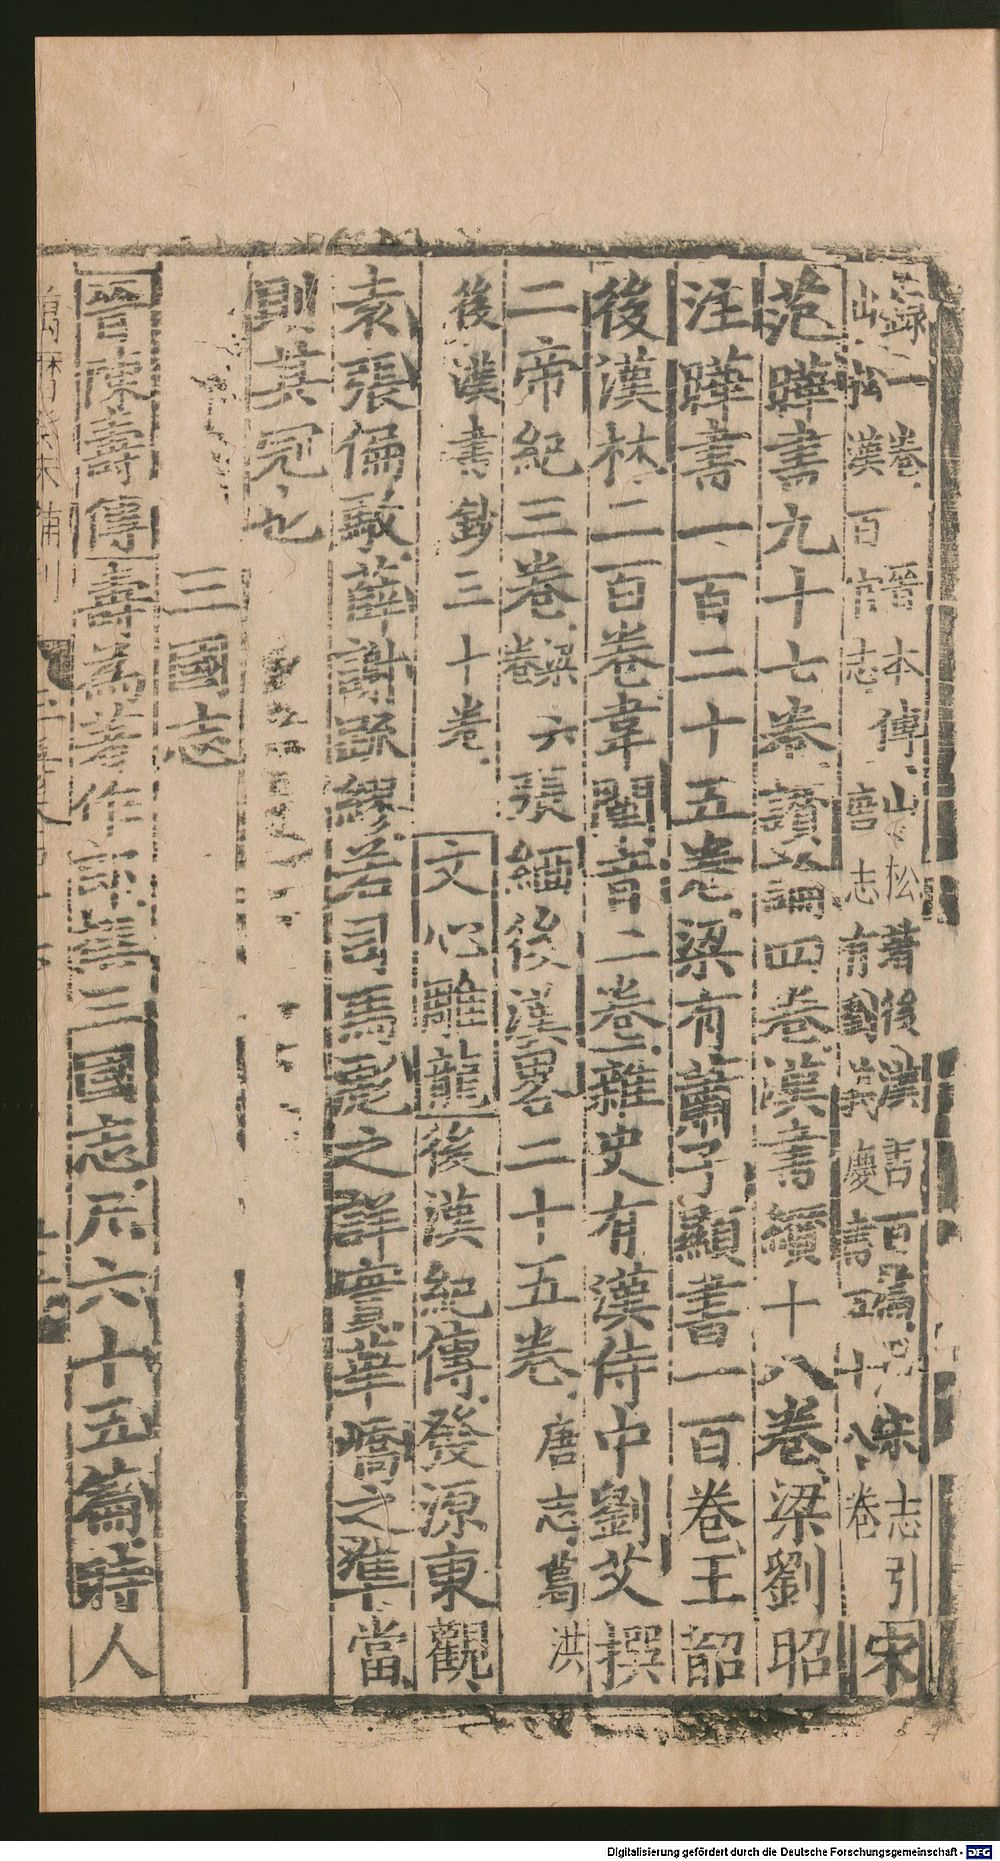 錄一卷晉本傳山松著後漢書百篇宋志引
山松漢百官志唐志有劉義慶書五十八卷宋
范曄書九十七卷讚論四卷漢書纘十八卷梁劉昭
注曄書一百二十五卷梁有蕭子顯書一百卷王韶
後漢林二百卷韋闡音二卷雜史有漢侍中劉艾撰
二帝紀三卷梁六卷張緬後漢畧二十五卷唐志葛洪
後漢書鈔三十卷文心雕龍後漢紀傳發源東觀
袁張偏駮薛謝疏繆若司馬彪之詳實華嶠之準當
則其冠也
三國志
晉陳壽傳壽為著作郎集三國志凡六十五篇時人
萬曆 補刊
Digitalisierung gefördert durch die Deutsche Forschungsgemeinschaft - DFG